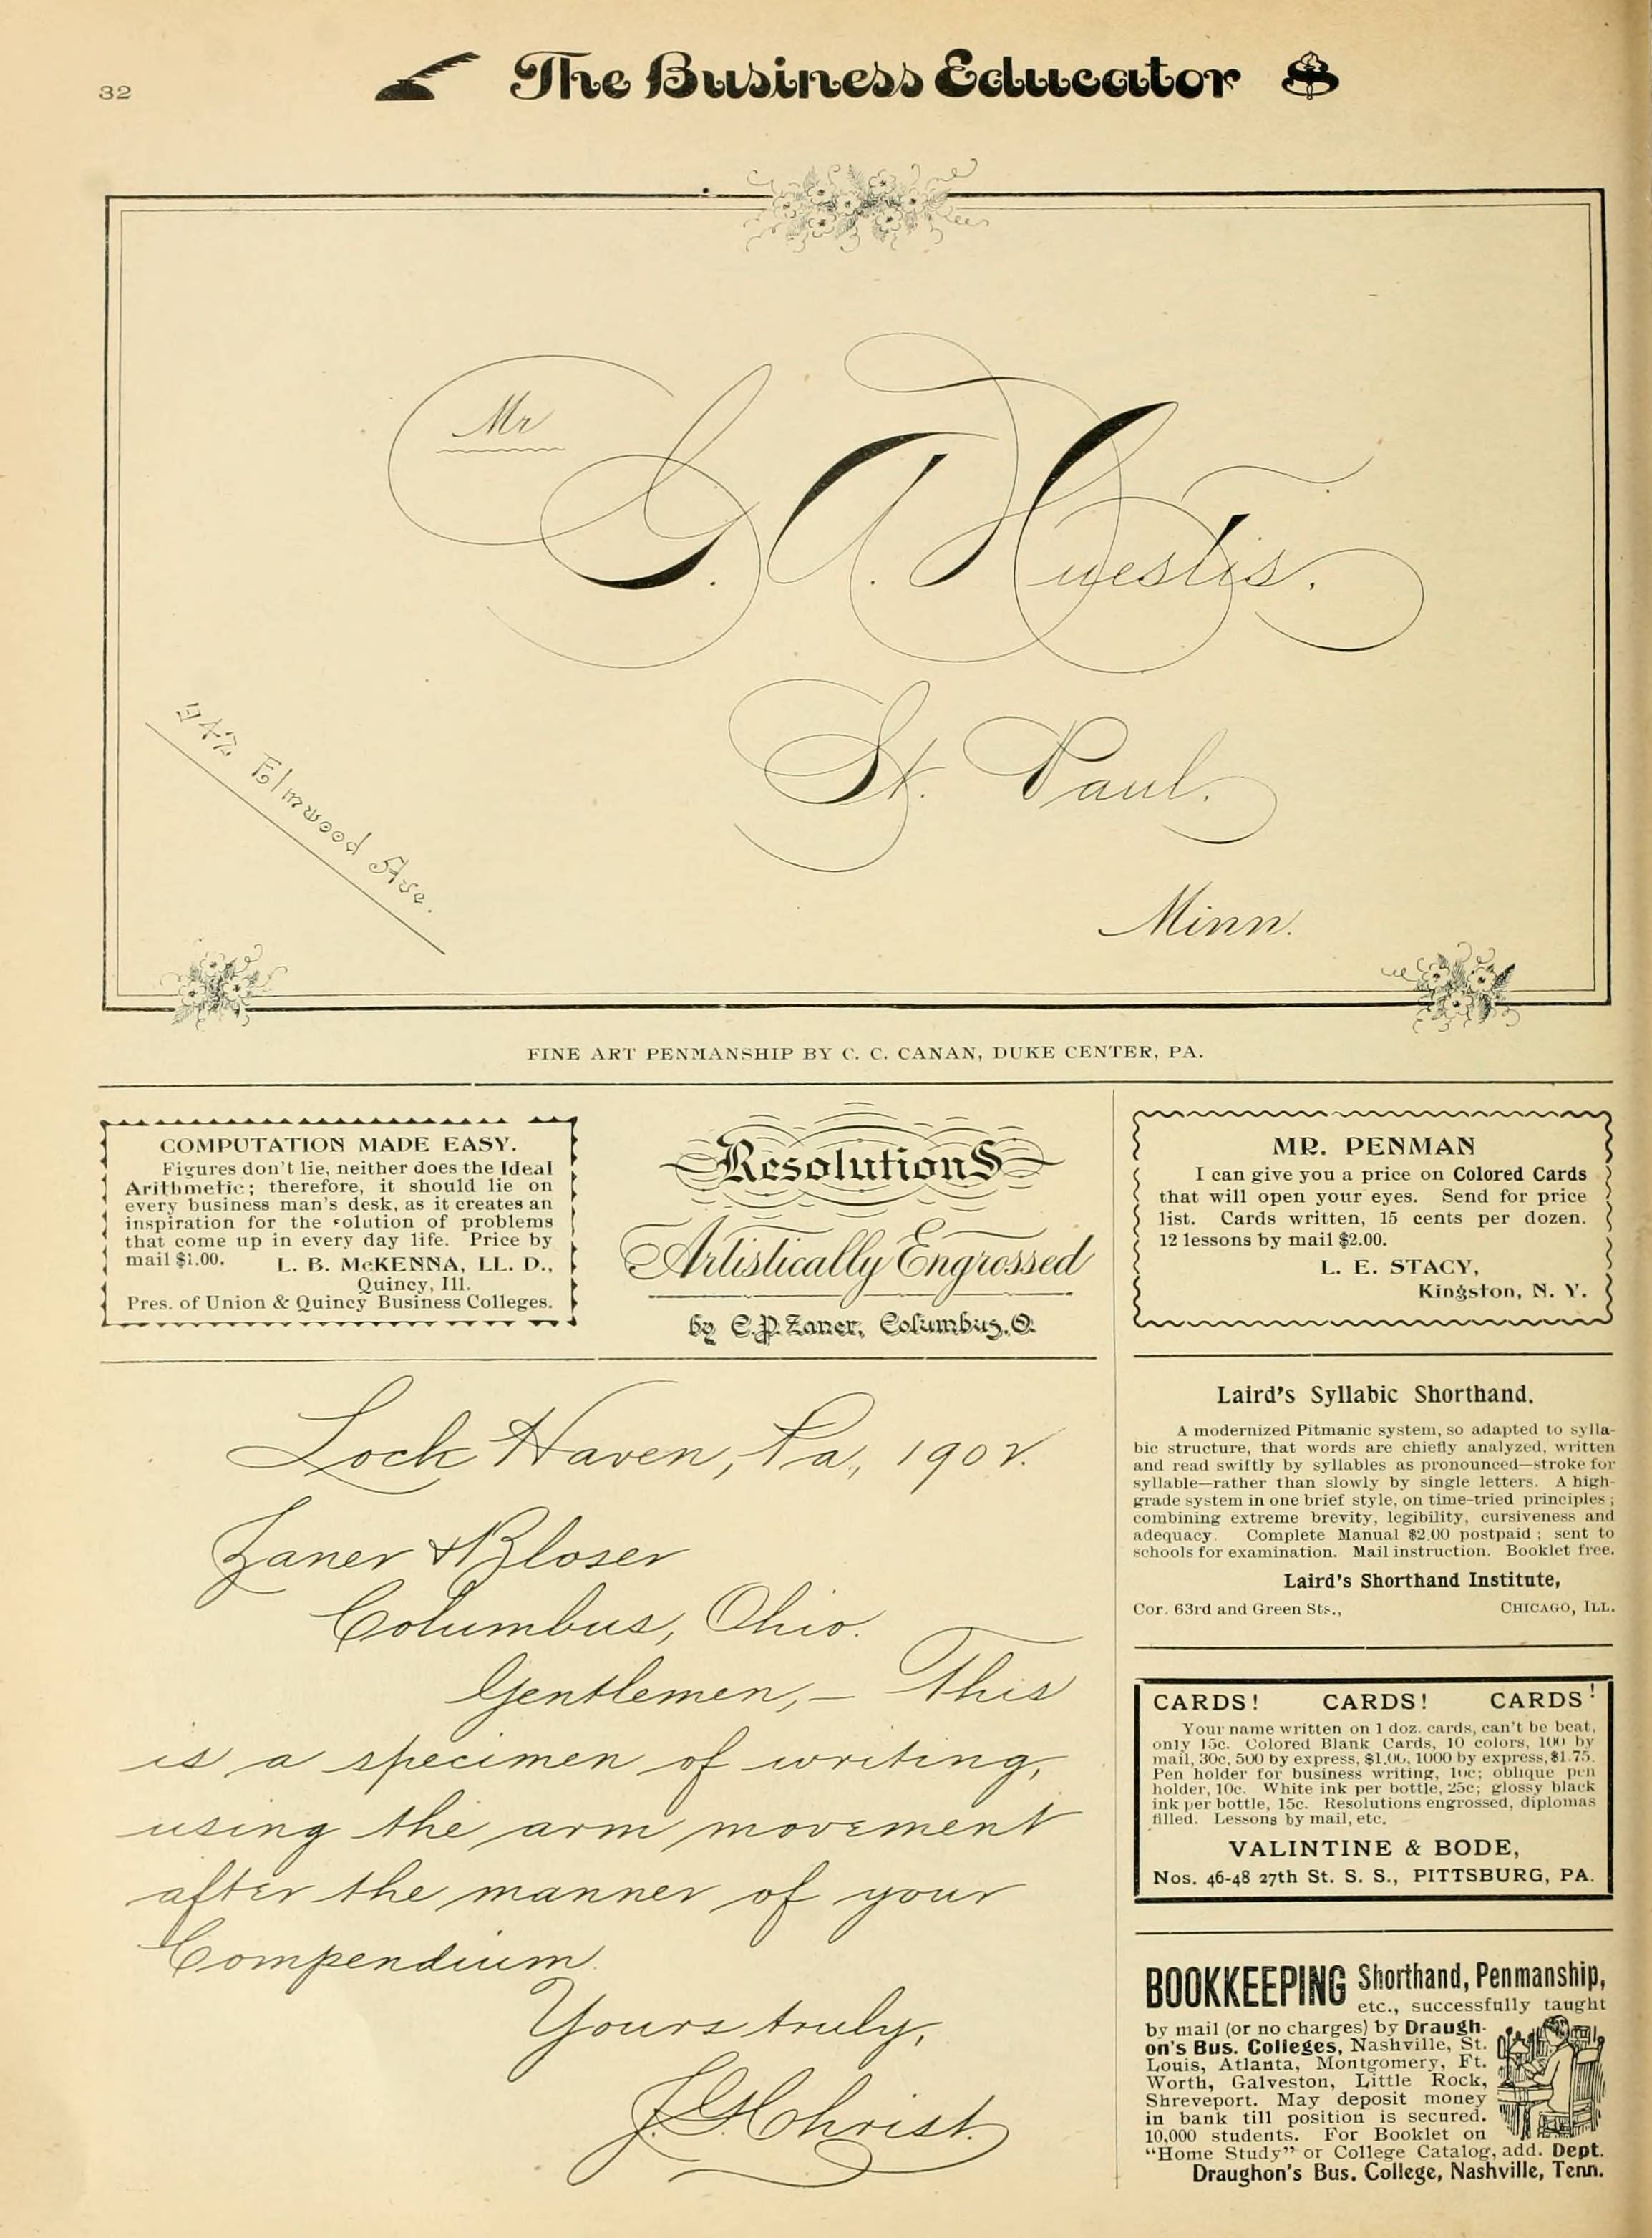 32
The Business Educator
Mr
G. A. Huestis.
St. Paul.
Minn.
942 Elmwood Ave.
FINE ART PENMANSHIP BY C. C. CANAN, DUKE CENTER, PA.
COMPUTATION MADE EASY.
Figures don't lie, neither does the Ideal
Arithmetic; therefore, it should lie on
every business man's desk, as it creates an
inspiration for the solution of problems
that come up in every day life. Price by
mail $1.00. L. B. McKENNA, LL. D.,
Quincy, Ill.
Pres. of Union & Quincy Business Colleges.
Resolutions
Artistically Engrossed
by C.P. Zaner, Columbus, O.
Lock Haven, Pa., 1902.
Zaner & Bloser
Columbus, Ohio.
Gentlemen,— This
is a specimen of writing,
using the arm movement
after the manner of your
Compendium.
Yours truly,
J. G. Christ.
MR. PENMAN
I can give you a price on Colored Cards
that will open your eyes. Send for price
list. Cards written, 15 cents per dozen.
12 lessons by mail $2.00.
L. E. STACY,
Kingston, N. Y.
Laird's Syllabic Shorthand.
A modernized Pitmanic system, so adapted to sylla-
bic structure, that words are chiefly analyzed, written
and read swiftly by syllables as pronounced—stroke for
syllable—rather than slowly by single letters. A high-
grade system in one brief style, on time-tried principles;
combining extreme brevity, legibility, cursiveness and
adequacy. Complete Manual $2.00 postpaid; sent to
schools for examination. Mail instruction. Booklet free.
Laird's Shorthand Institute,
Cor. 63rd and Green Sts., CHICAGO, ILL.
CARDS! CARDS! CARDS!
Your name written on 1 doz. cards, can't be beat,
only 15c. Colored Blank Cards, 10 colors, 100 by
mail, 30c, 500 by express, $1.00, 1000 by express, $1.75.
Pen holder for business writing, 10c; oblique pen
holder, 10c. White ink per bottle, 25c; glossy black
ink per bottle, 15c. Resolutions engrossed, diplomas
filled. Lessons by mail, etc.
VALINTINE & BODE,
Nos. 46-48 27th St. S. S., PITTSBURG, PA.
BOOKKEEPING Shorthand, Penmanship,
etc., successfully taught
by mail (or no charges) by Draugh-
on's Bus. Colleges, Nashville, St.
Louis, Atlanta, Montgomery, Ft.
Worth, Galveston, Little Rock,
Shreveport. May deposit money
in bank till position is secured.
10,000 students. For Booklet on
"Home Study" or College Catalog, add. Dept.
Draughon's Bus. College, Nashville, Tenn.